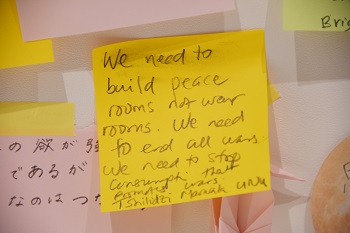 We need to
build peace
rooms not war
rooms. We need
to end all wars.
We need to stop
consumption that
promotes wars.
Tshilidzi Marwala UNU
の欲が強
であるが
なのはつな
Brig